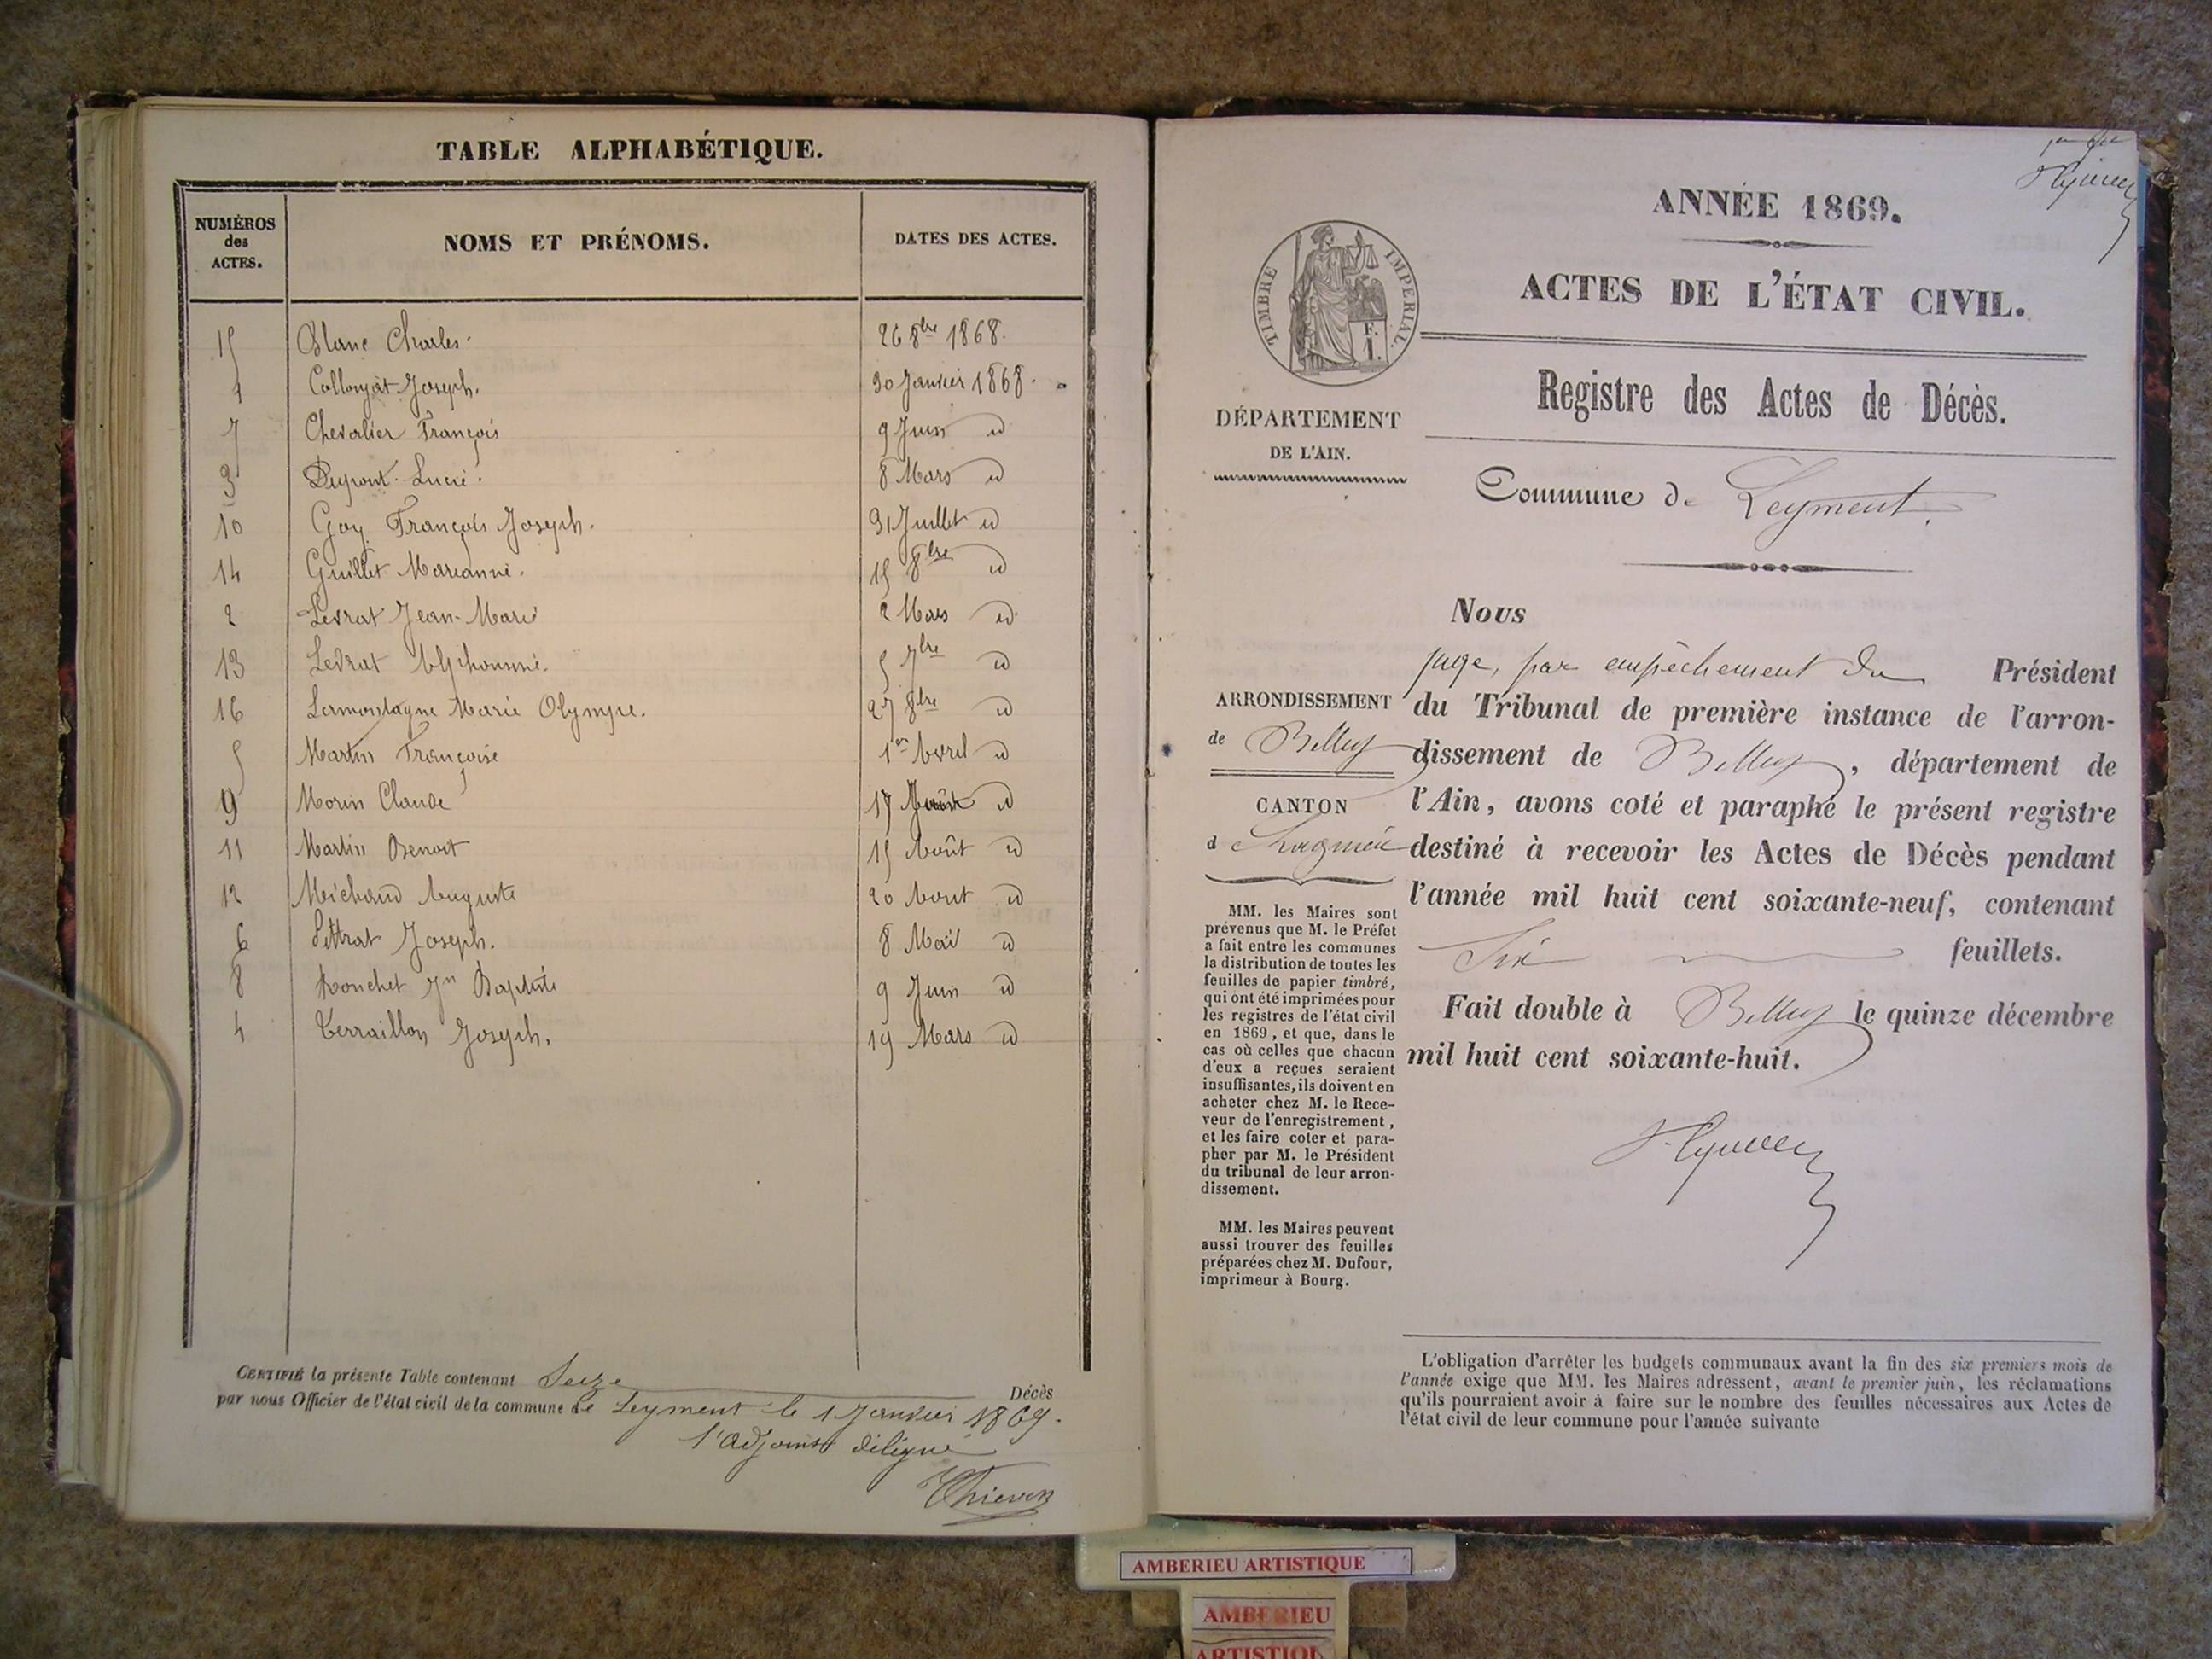 TABLE ALPHABÉTIQUE.
NUMÉROS des ACTES.
NOMS ET PRÉNOMS.
DATES DES ACTES.
15 Blanc Charles. 26 8bre 1868.
1 Collonjat Joseph. 30 Janvier 1868.
7 Chevalier François 9 Juin id
3 Dupont Lucie. 8 Mars id
10 Goy François Joseph. 31 Juillet id
14 Guillet Marianne. 15 8bre id
2 Levrat Jean-Marie 2 Mars id
13 Levrat Alphonsine. 5 7bre id
16 Lamontagne Marie Olympe. 27 8bre id
5 Martin Françoise 1er Avril id
9 Morin Claude 17 id
11 Martin Benoit 15 Août id
12 Michaud Auguste 20 Aout id
6 Joseph. 8 Mai id
8 Ronchet Jn Baptiste 9 Juin id
4 Terraillon Joseph. 19 Mars id
CERTIFIÉ la présente Table contenant Seize Décès
par nous Officier de l'état civil de la commune de Leyment le 1 Janvier 1869.
l'adjoint délégué
ANNÉE 1869.
ACTES DE L'ÉTAT CIVIL.
TIMBRE IMPERIAL.
F.
1.
Registre des Actes de Décès.
DÉPARTEMENT
DE L'AIN.
Commune de Leyment.
ARRONDISSEMENT
de Belley
CANTON
d Lagnieu
MM. les Maires sont
prévenus que M. le Préfet
a fait entre les communes
la distribution de toutes les
feuilles de papier timbré,
qui ont été imprimées pour
les registres de l'état civil
en 1869, et que, dans le
cas où celles que chacun
d'eux a reçues seraient
insuffisantes, ils doivent en
acheter chez M. le Rece-
veur de l'enregistrement,
et les faire coter et para-
pher par M. le Président
du tribunal de leur arron-
dissement.
MM. les Maires peuvent
aussi trouver des feuilles
préparées chez M. Dufour,
imprimeur à Bourg.
Nous
juge, par empêchement du Président
du Tribunal de première instance de l'arron-
dissement de Belley, département de
l'Ain, avons coté et paraphé le présent registre
destiné à recevoir les Actes de Décès pendant
l'année mil huit cent soixante-neuf, contenant
Six feuillets.
Fait double à Belley le quinze décembre
mil huit cent soixante-huit.
L'obligation d'arrêter les budgets communaux avant la fin des six premiers mois de
l'année exige que MM. les Maires adressent, avant le premier juin, les réclamations
qu'ils pourraient avoir à faire sur le nombre des feuilles nécessaires aux Actes de
l'état civil de leur commune pour l'année suivante
AMBERIEU ARTISTIQUE
AMBERIEU
ARTISTIQU